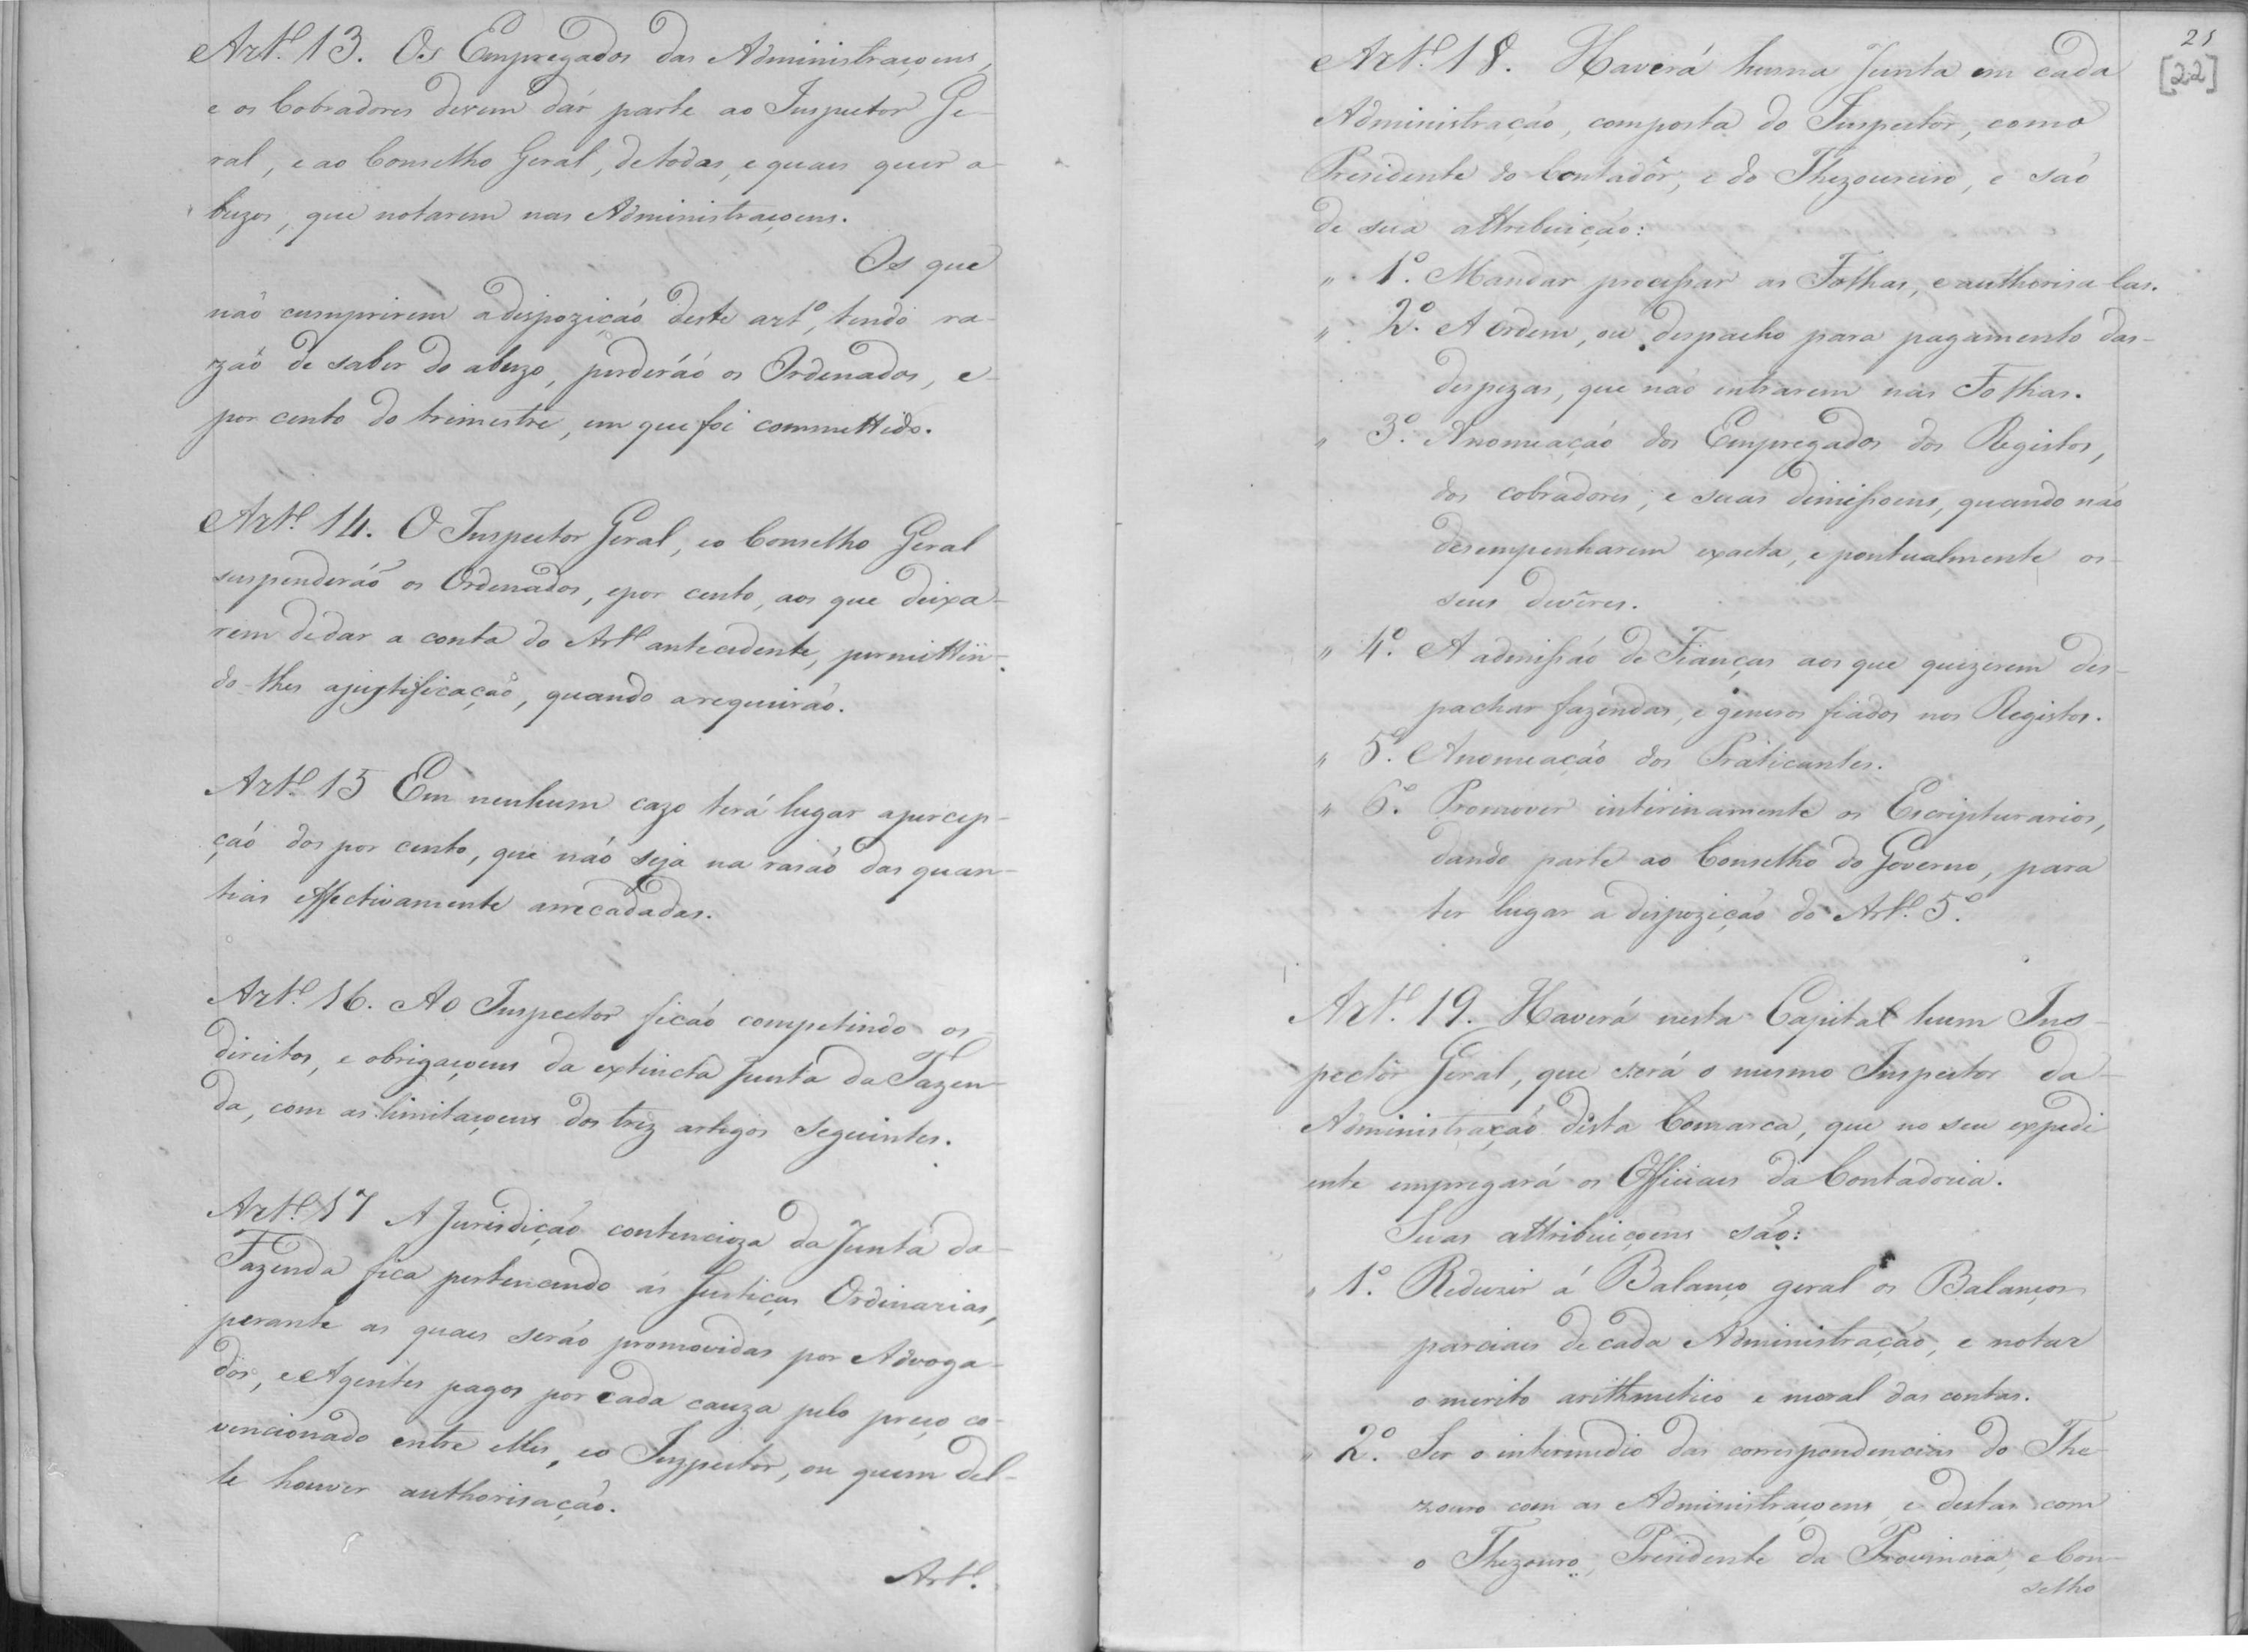 Art.º 13. Os Empregados das Administraçoens,
e os Cobradores devem dár parte ao Inspector Ge-
ral, e ao Conselho Geral, de todas, e quais quer a-
buzos, que notarem nas Administraçoens.
Os que
não cumprirem a dispozição deste art.º, tendo ra-
zão de saber do abuzo, perderáõ os Ordenados, e-
por cento do trimestre, em que foi committido.
Art.º 14. O Inspector Geral, e o Conselho Geral
suspenderáõ os Ordenados, e por cento, aos que deixa-
rem de dar a conta do Art.º antecedente, permittin-
do-lhes a justificação, quando a requeirão.
Art.º 15 Em nenhum cazo terá lugar a percep-
ção dos por cento, que não seja na rasão das quan-
tias effectivamente arrecadadas.
Art.º 16. Ao Inspector ficão competindo os-
direitos, e obrigaçoens da extincta Junta da Fazen-
da, com as limitaçoens dos trez artigos seguintes.
Art.º 17 A Jurisdição contencioza da Junta da-
Fazenda fica pertencendo ás Justiças Ordinarias,
perante as quaes serão promovidas por Advoga-
dos, e Agentes pagos por cada cauza pelo preço co-
vencionado entre elles, e o Inspector, ou quem del-
le houver authorisação.
Art.º
21
[22]
Art.º 18. Haverá huma Junta em cada
Administração, composta do Inspector, como
Presidente do Contadôr, e do Thezoureiro, e são
de sua attribuição:
" 1.º Mandar processar as Folhas, e authorisa-las.
" 2.º A ordem, ou despacho para pagamento das-
despezas, que não entrarem nas Folhas.
" 3.º A nomeação dos Empregados dos Registos,
dos cobradores, e suas dimissoens, quando não
desempenharem exacta, e pontualmente os-
seus devêres.
" 4.º A admissão de Fianças aos que quizerem des-
pachar fazendas, e generos fiados nos Registos.
" 5.º A nomeação dos Praticantes.
" 6.º Promover interinamente os Escripturarios,
dando parte ao Conselho do Governo, para
ter lugar a dispozição do Art.º 5.º
Art.º 19. Haverá nesta Capital hum Ins-
pector Geral, que será o mesmo Inspector da-
Administração desta Comarca, que no seu expedi
ente empregará os Officiaes da Contadoria.
Suas attribuiçoens são:
" 1.º Reduzir á Balanço geral os Balanços
parciaes de cada Administração, e notar
o merito arithmetico e moral das contas.
" 2.º Ser o intermedio das correspondencias do The-
zouro com as Administraçoens, e destas com
o Thezouro, Presidente da Provincia, e Con-
selho